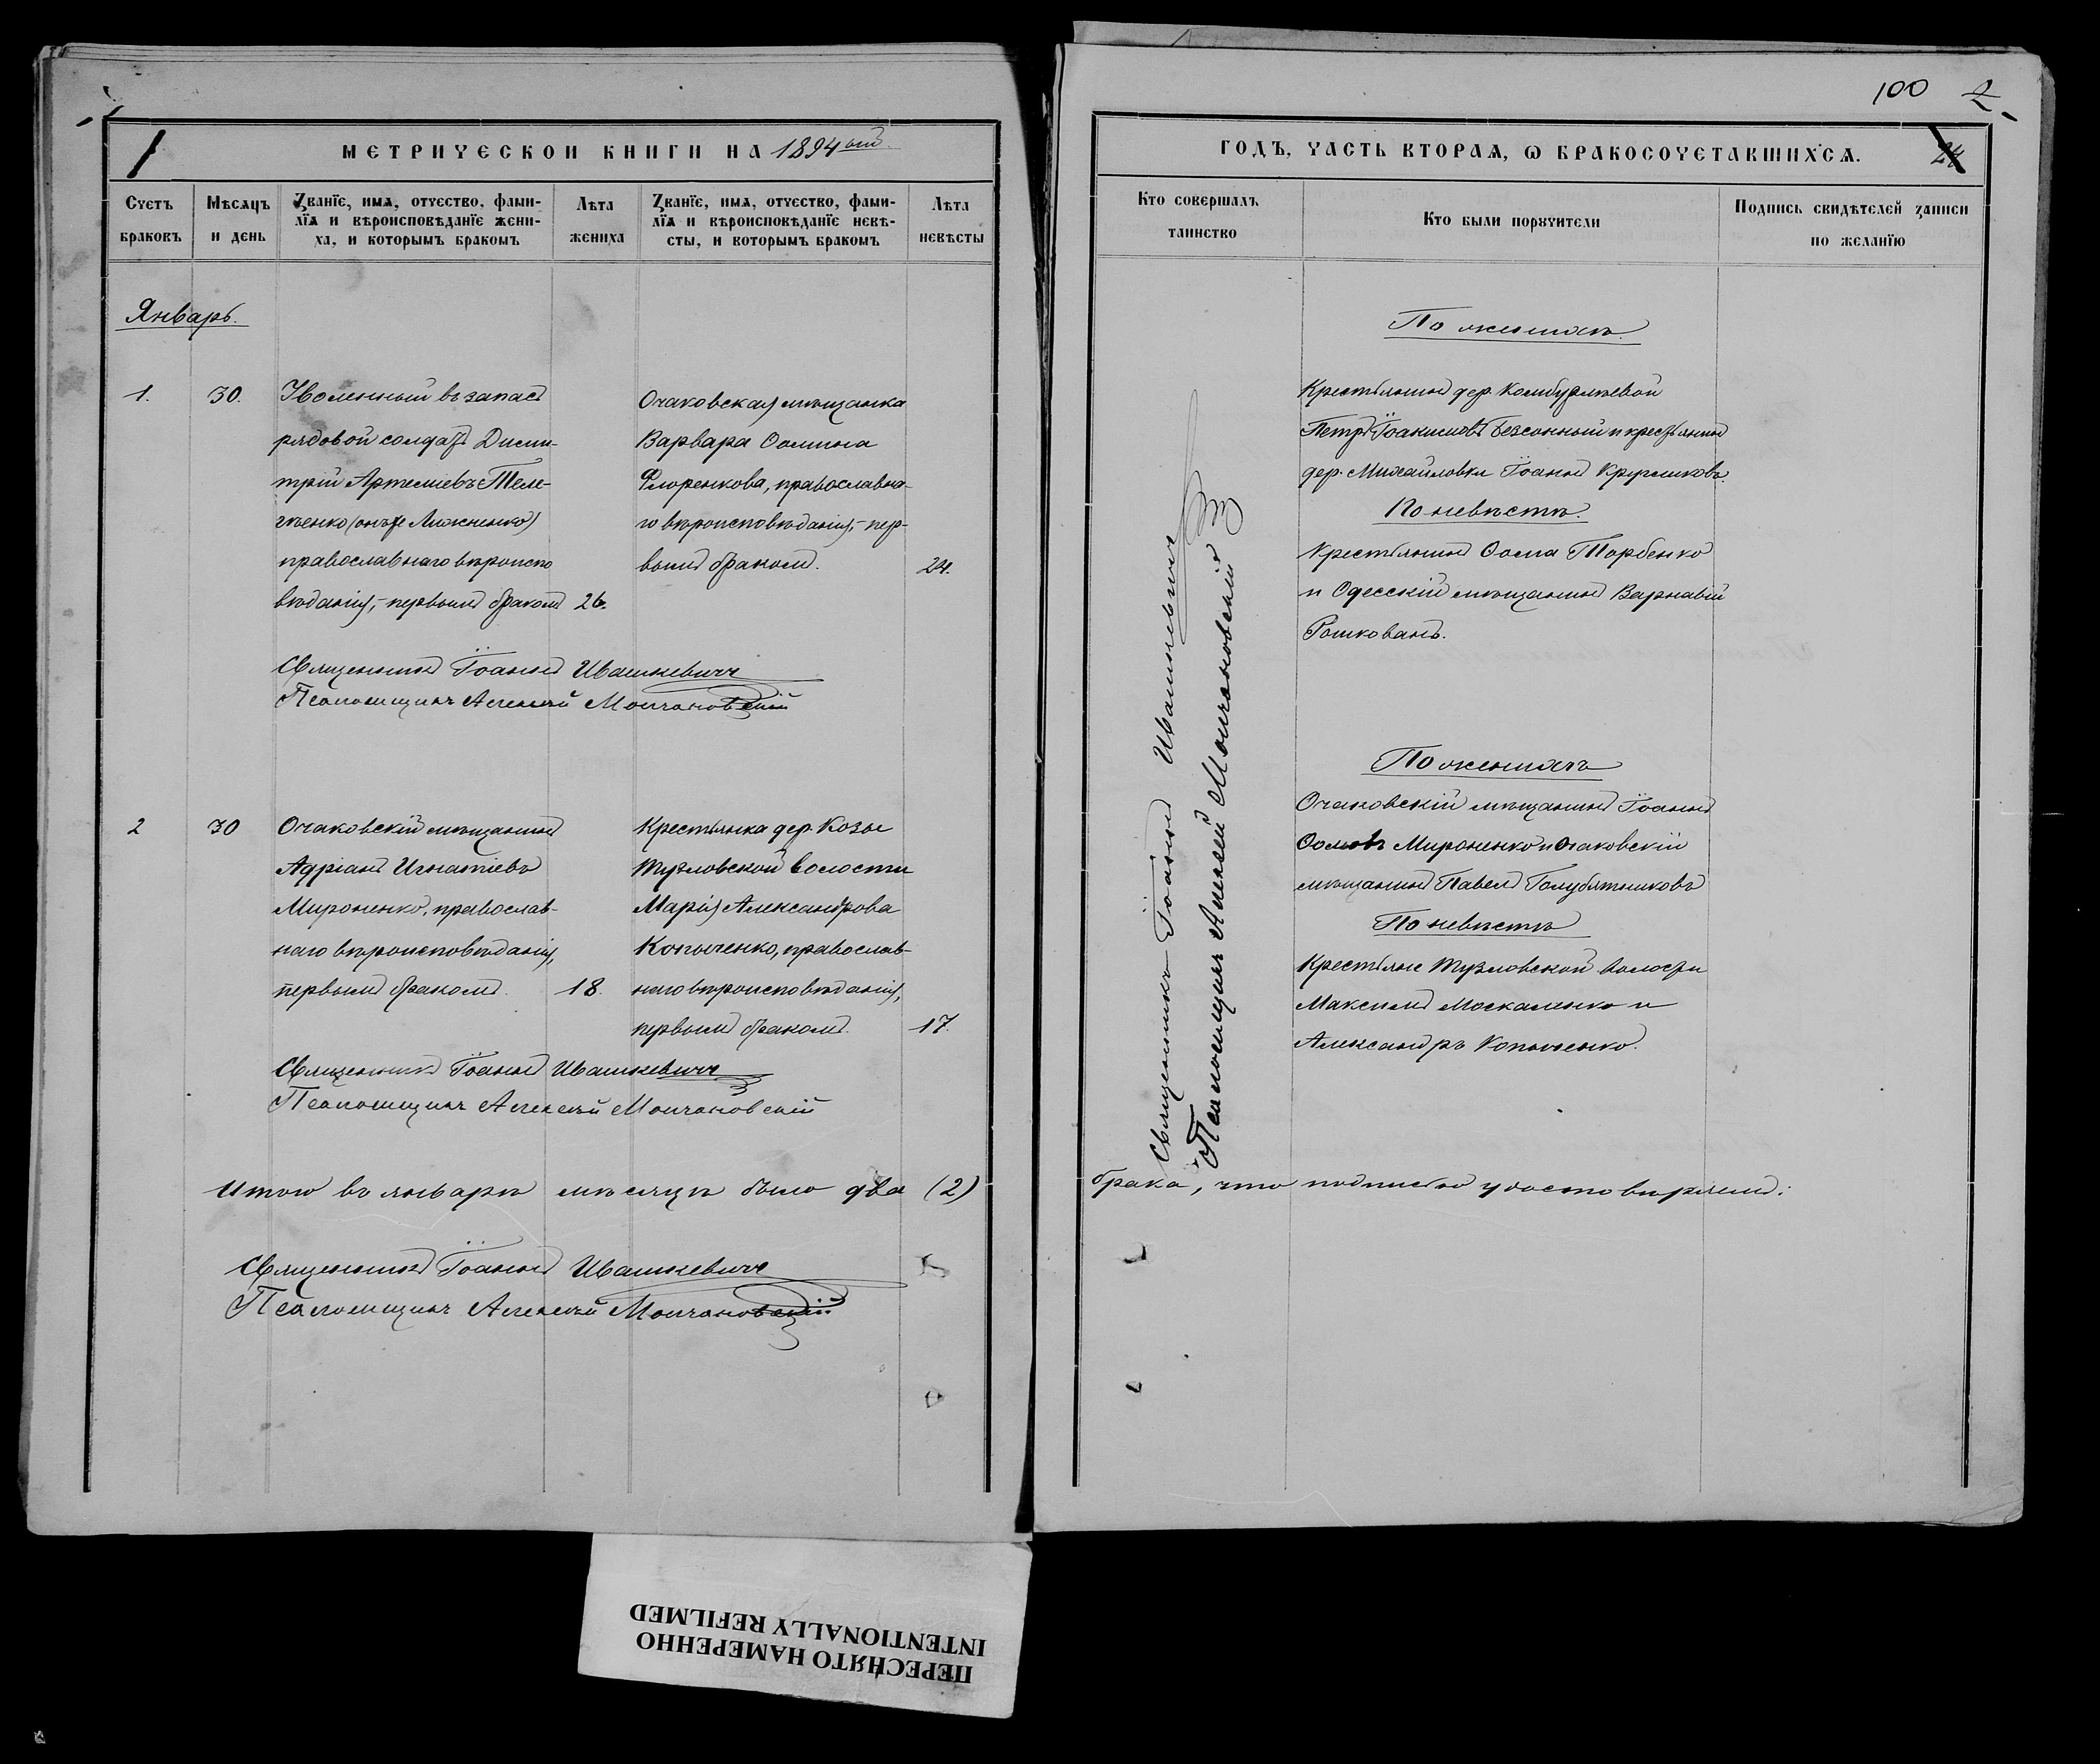 МЕТРИЧЕСКОЙ КНИГИ НА 1894ый
Счетъ браковъ
Мѣсяцъ и день
Званїе, имя, отчество, фами-
лїя и вѣроисповѣданїе жени-
ха, и которымъ бракомъ
Лѣта жениха
Званїе, имя, отчество, фами-
лїя и вѣроисповѣданїе невѣ-
сты, и которымъ бракомъ
Лѣта невѣсты
Январь.
1.
30.
Уволенный въ запасъ
рядовой солдатъ Дими-
трій Артеміевъ Теле-
женко)
православнаго вѣроиспо
вѣданія,- первымъ бракомъ
26.
Очаковская мѣщанка
Варвара Ѳомина
Флоренкова, православна-
го вѣроисповѣданія,- пер-
вымъ бракомъ.
24.
Священникъ Іоаннъ Ивашкевичъ
Псаломщикъ Алексѣй Молчановскій
2
30
Очаковскій мѣщанинъ
Адріанъ Игнатіевъ
Мироненко, православ-
наго вѣроисповѣданія,
первымъ бракомъ.
18.
Крестьянка дер. Козы
Тузловской волости
Марія Александрова
Копыченко, православ-
наго вѣроисповѣданія,
первымъ бракомъ.
17.
Священникъ Іоаннъ Ивашкевичъ
Псаломщикъ Алексѣй Молчановскій
Итого въ январѣ мѣсяцѣ было два (2)
Священникъ Іоаннъ Ивашкевичъ
Псаломщикъ Алексѣй Молчановскій
100 2
ГОДЪ, ЧАСТЬ ВТОРАЯ, Ѡ БРАКОСОЧЕТАВШИХСЯ.
24
Кто совершалъ
таинство
Кто были порꙋчители
Подпись свидѣтелей записи
по желанїю
Священникъ Іоаннъ Ивашкевичъ
Псаломщикъ Алексѣй Молчановскій
По женихѣ.
Крестьянинъ дер.
Петръ Іоакимовъ Безсонный и крестьянинъ
дер. Михайловки Іоаннъ Кругликовъ.
По невѣстѣ.
Крестьянинъ Ѳома Торбенко
и Одесскій мѣщанинъ Варнавій
Рошкованъ.
По женихѣ
Очаковскій мѣщанинъ Іоаннъ
Ѳомовъ Мироненко и Очаковскій
мѣщанинъ Павелъ Голубятниковъ
По невѣстѣ
Крестьяне Тузловской волости
Максимъ Москаленко и
Александръ Копыченко.
брака, что подписью удостовѣряемъ:
ПЕРЕСНЯТО НАМЕРЕННО
INTENTIONALLY REFILMED